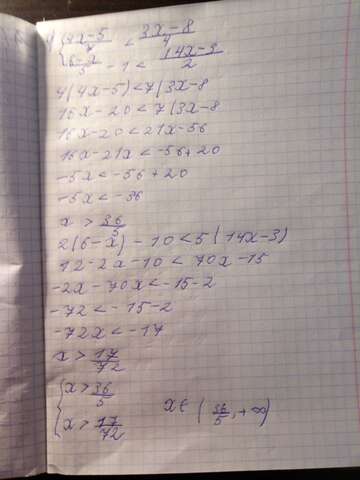 { (4x-5)/7 < (3x-8)/4
{ (6-x)/5 - 1 < (14x-3)/2
4(4x-5)<7(3x-8
16x-20<7(3x-8
16x-20<21x-56
16x-21x<-56+20
-5x<-56+20
-5x<-36
x > 36/5
2(6-x)-10<5(14x-3)
12-2x-10<70x-15
-2x-70x<-15-2
-72<-15-2
-72x<-17
x > 17/72
{ x > 36/5
{ x > 17/72 x∈(36/5,+∞)